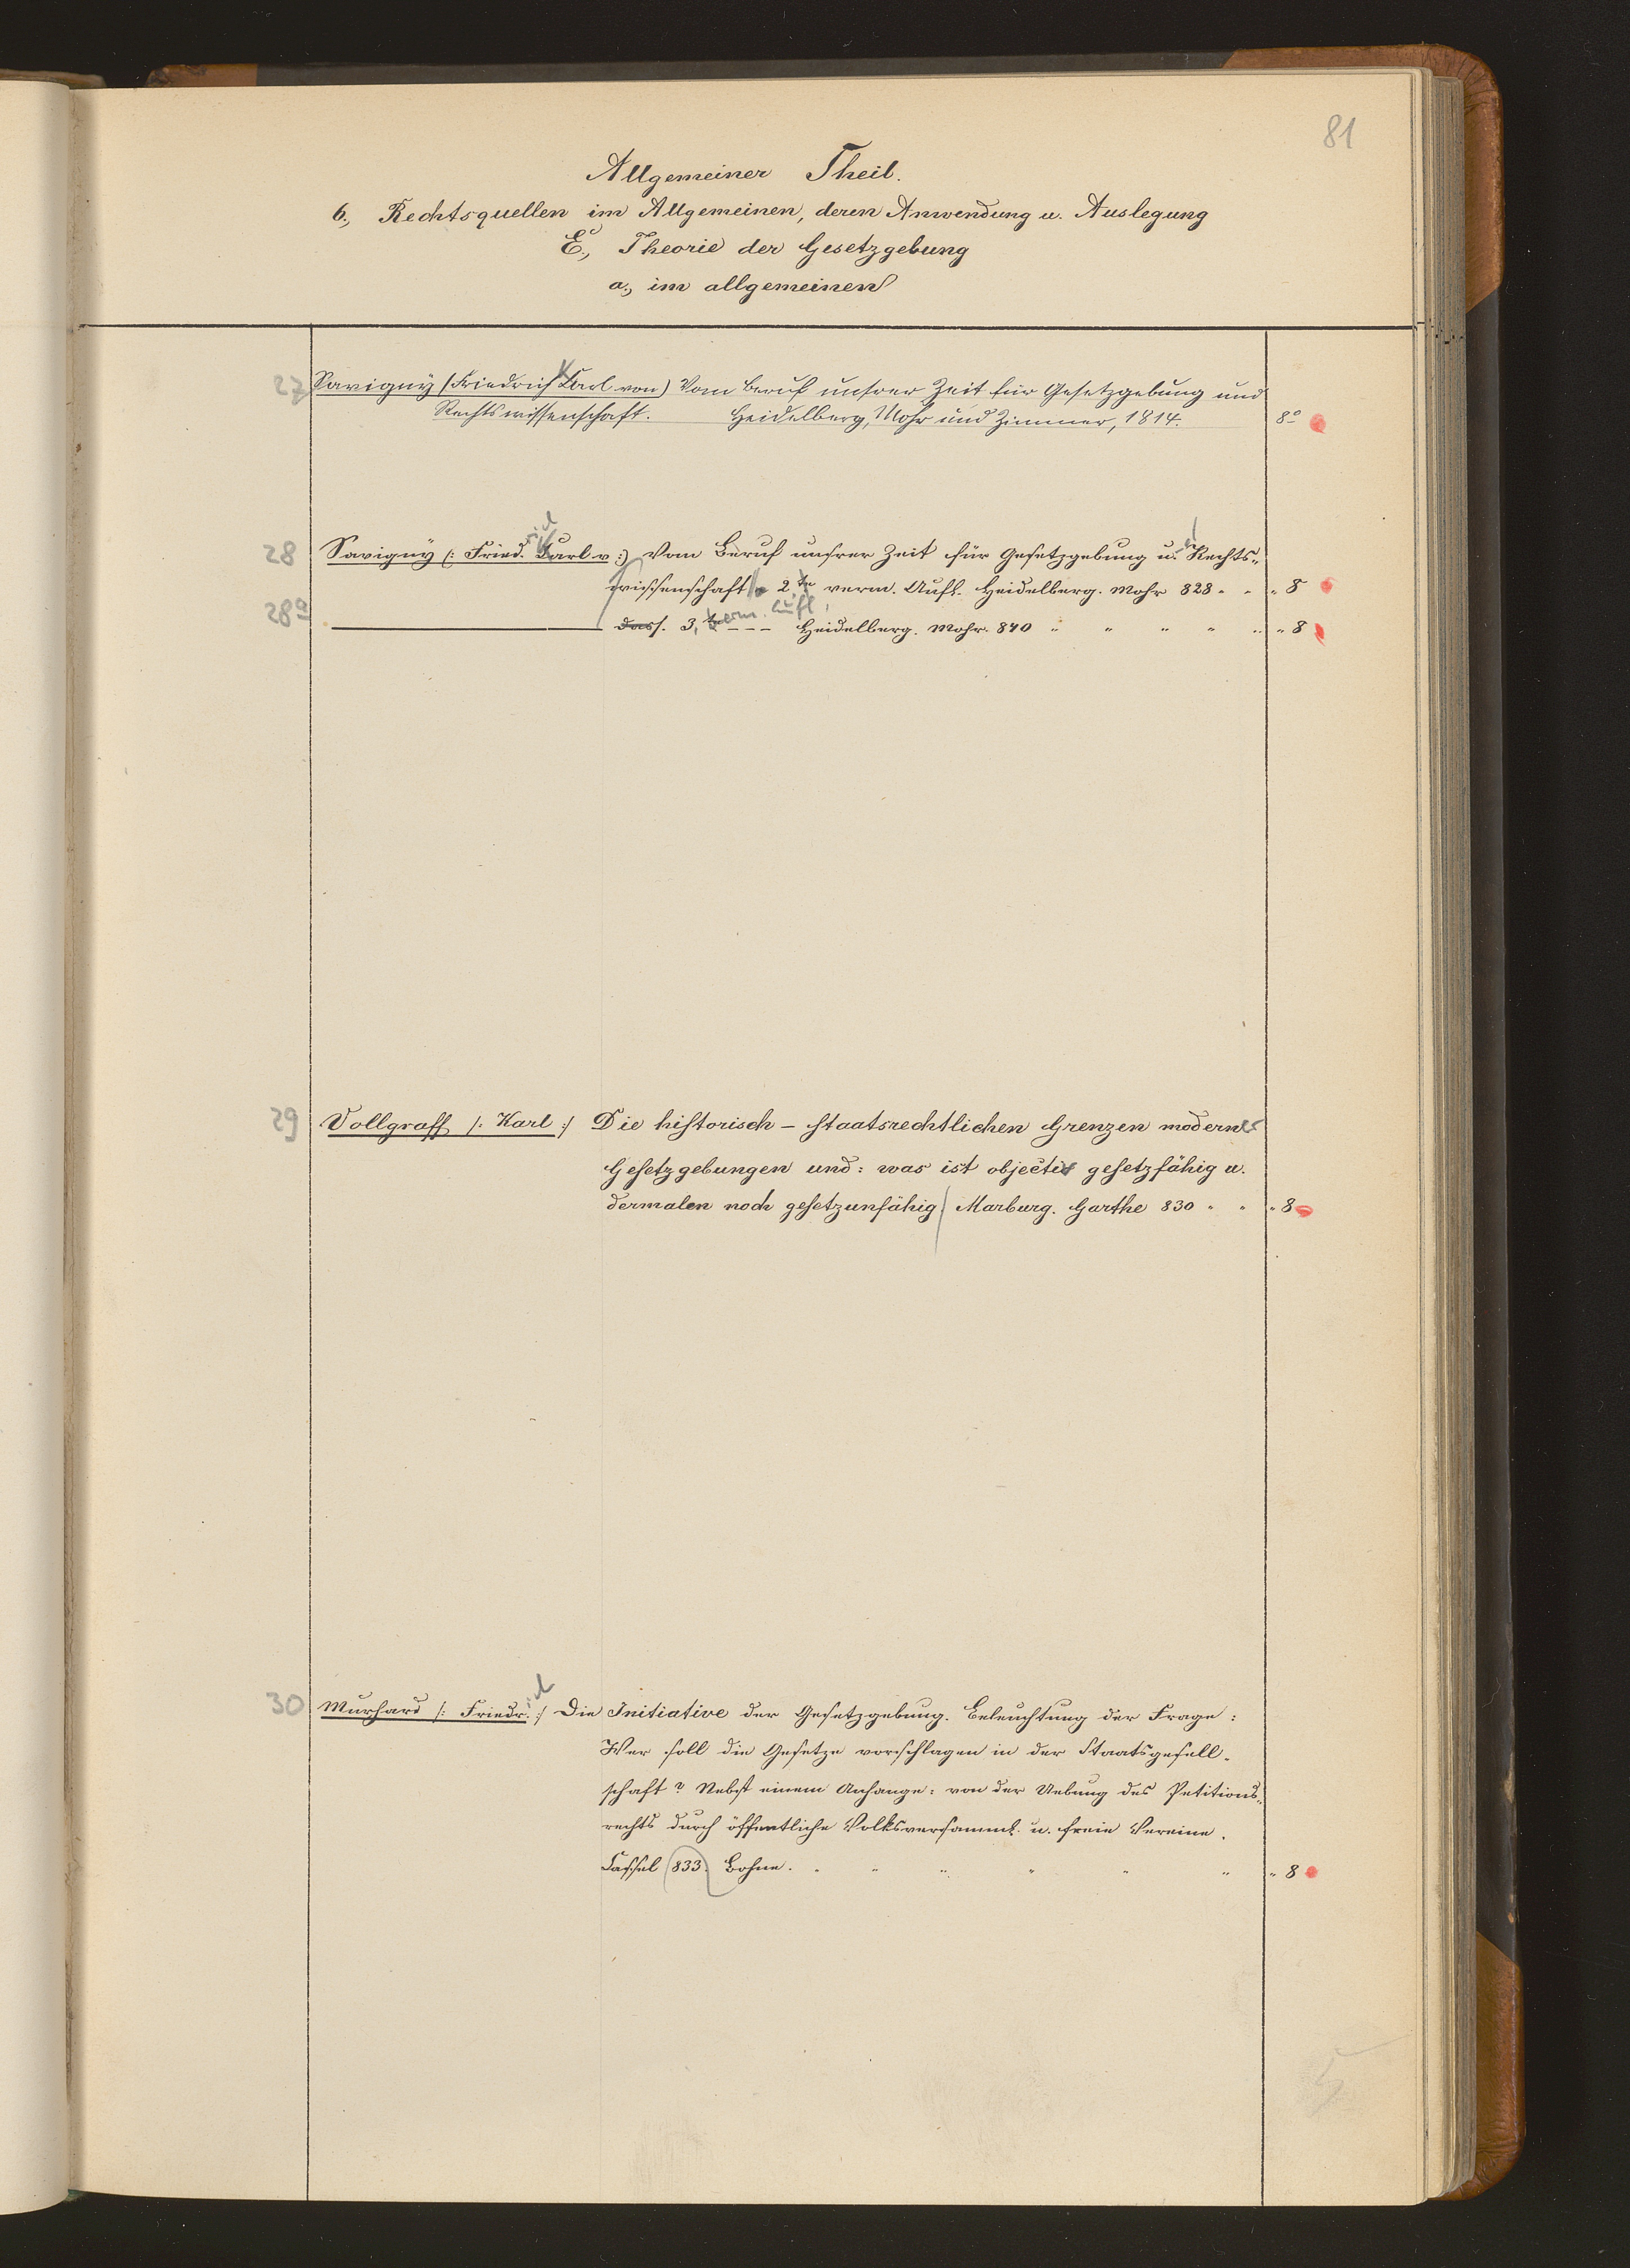 81
Allgemeiner Theil.
6., Rechtsquellen im Allgemeinen, deren Anwendung u. Auslegung
E., Theorie der Gesetzgebung
a., im allgemeinen
27 Savigny (Friedrich Karl von) Vom Beruf unsrer Zeit für Gesetzgebung und
Rechtswissenschaft. Heidelberg, Mohr und Zimmer, 1814. 8°
28 Savigny (: Fried. Karl v :) Vom Beruf unsrer Zeit für Gesetzgebung u. Rechts„
wissenschaft 2.te verm. Aufl. Heidelberg. Mohr 828 " " " 8
28a dass. 3. verm. Aufl. Heidelberg. Mohr. 840 " " " " " " 8
29 Vollgraff /: Karl :/ Die historisch – staatsrechtlichen Grenzen moderner
Gesetzgebungen und: was ist objectiv gesetzfähig u.
dermalen noch gesetzunfähig / Marburg. Garthe 830 " " " 8
30 Murhard /: Friedr. :/ Die Initiative der Gesetzgebung. Beleuchtung der Frage:
Wer soll die Gesetze vorschlagen in der Staatsgesell-
schaft? Nebst einem Anhange: von der Uebung des Petitions„
rechts durch öffentliche Volksversamml. u. freie Vereine.
Cassel 833. Bohne. " " " " " " " 8
5